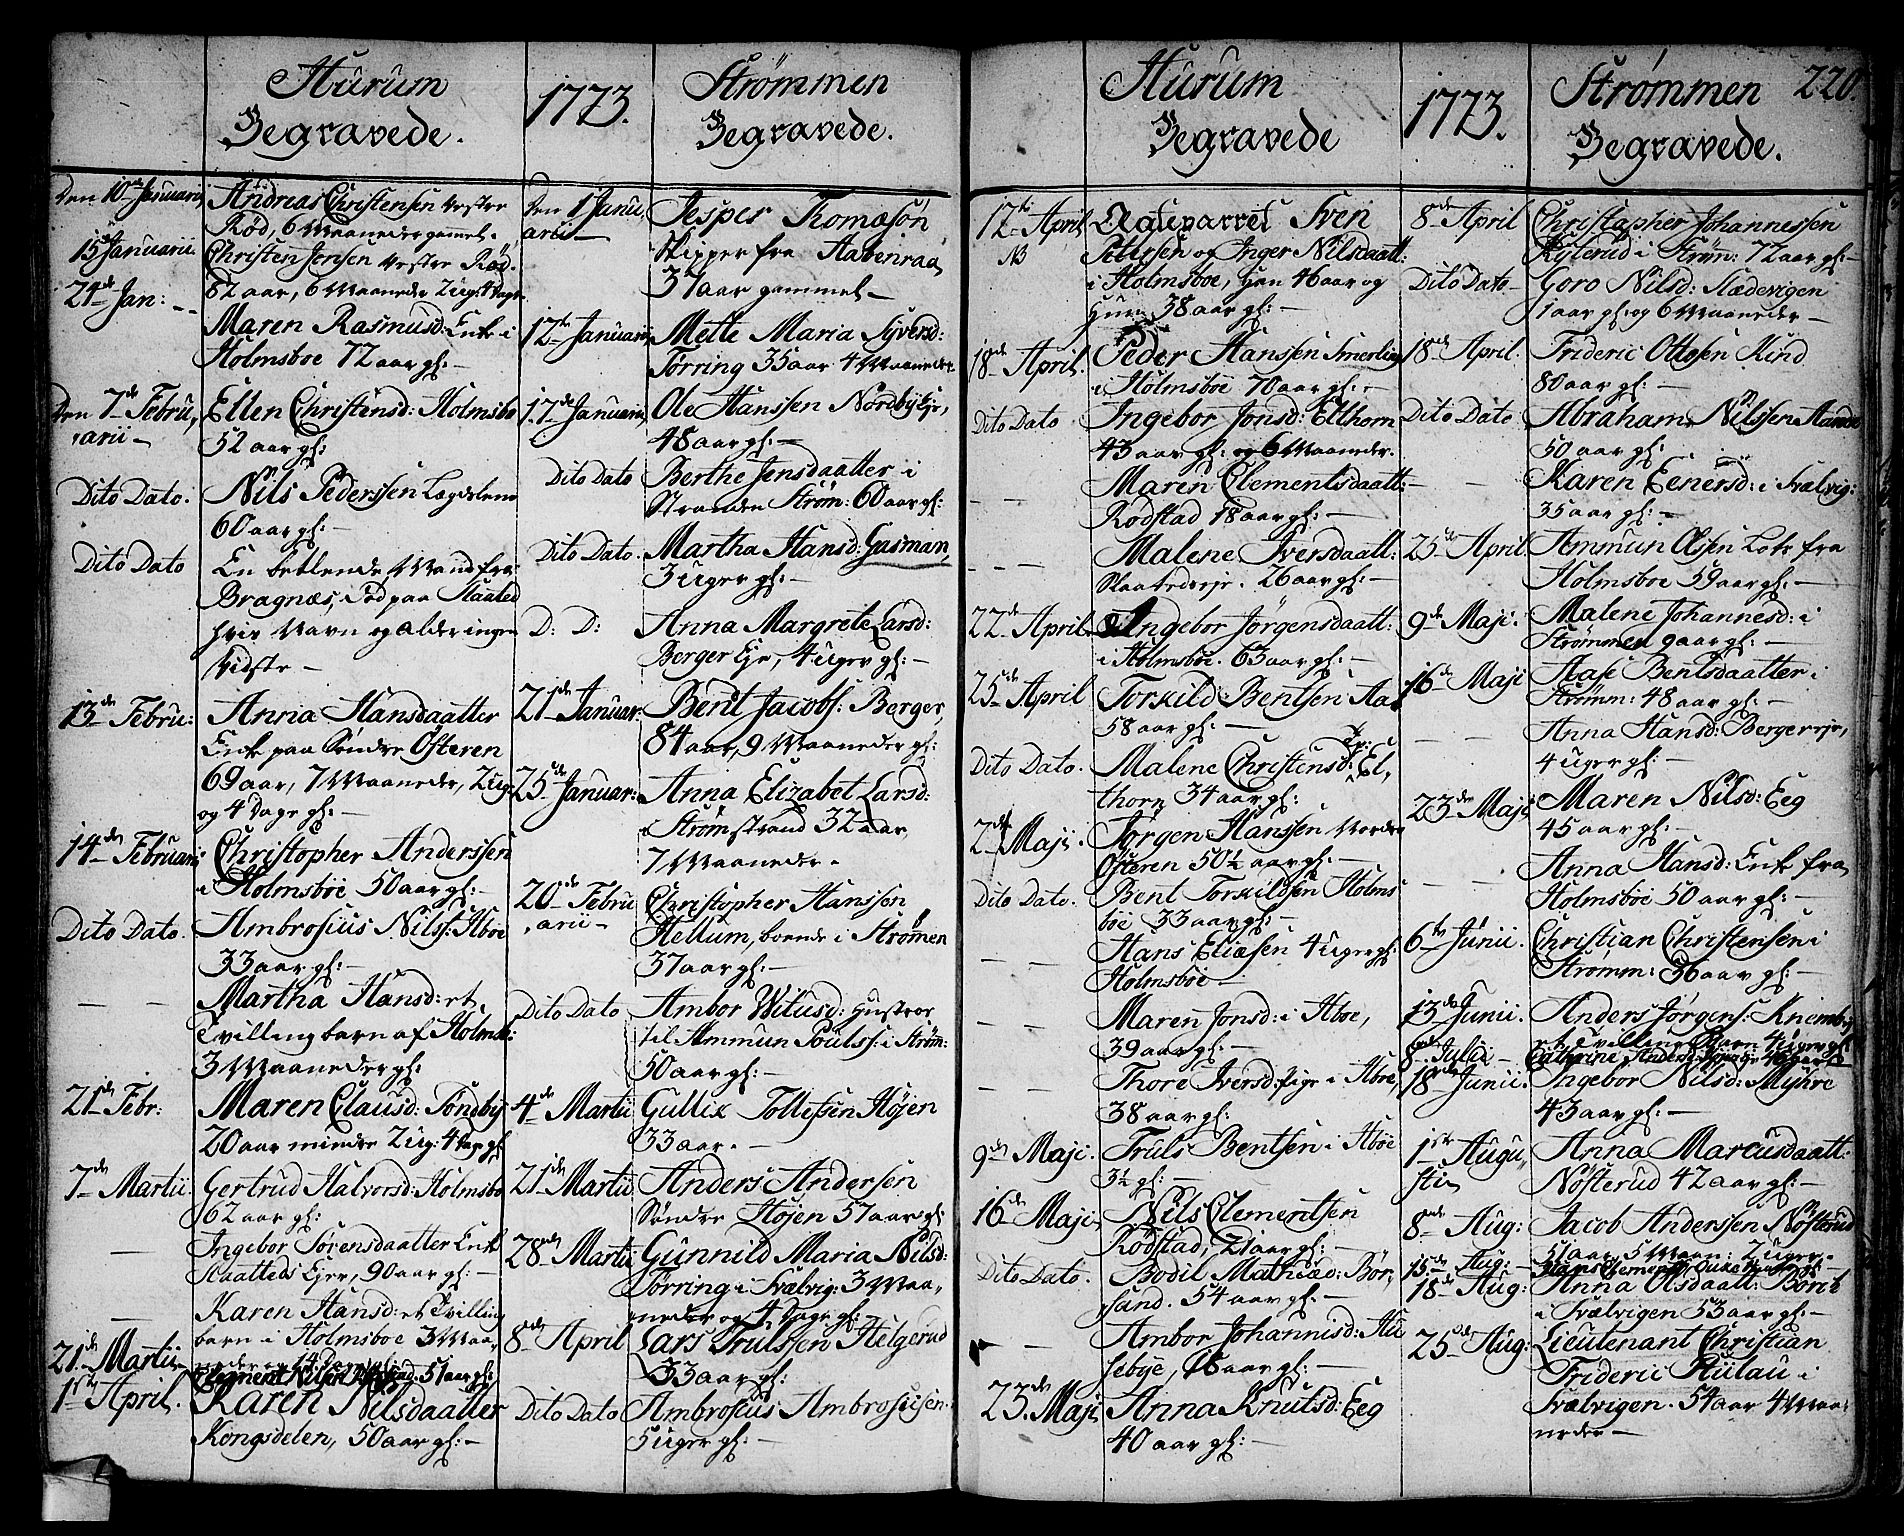 Hurum
Begravede.
Den 10de Januarii
Andreas Christensen Vestre
Rød, 6 Maaneder gammel.
15 Januarii
Christen Jensen Vestre Rød
82 aar, 6 Maaneder 2 ug: 4 dage
24de Jan:
Maren Rasmusd: Enke i
Holmsboe 72 aar gl:
Den 7de Febru,
arii
Ellen Christensd: Holmsbo
52 aar gl:
Dito Dato.
Nils Pederssen Lægdelem
60 aar gl:
Dito Dato
En betlende Mand fra
Bragnæs, død paa Staated
hvis Navn og alder ingen
vidste
13de Febru:
Anna Hansdaatter
Enke paa Søndre Østeren
69 aar, 7 Maaneder, 2 ug:
og 4 dage gl:
14de Februarii
Christopher Anderssen
i Holmsbøe 50 aar gl:
Dito Dato.
Ambrosius Nilss: Aboe
33 aar gl:
Martha Hansd: et
Tvillingbarn af Holmsb:
3 Maaneder gl:
21de Febr:
Maren Clausd: Tøndby
20 aar mindre 2 ug: 4 dag gl
7de Martii.
Gertrud Halvorsd: Holmsbo
62 aar gl:
Ingebor Sørensdaatter Enke
Staatteds Ejer, 90 aar gl:
Karen Hansd: et Tvilling
barn i Holmsboe 3 Maa,
21de Martii
Clement Nilsen Rødstad. 51 aar gl:
1ste April.
Karen Nilsdaatter
Kongsdelen, 50 aar gl:
1773.
Strømmen
Begravede.
Den 1 Janu,
arii
Jesper Thomæsøn
Skipper fra Aabenraa
37 aar gammel
12te Januarii
Mette Maria Syversd:
Tørring 35 aar 4 Maaneder
17de Januarii
Ole Hanssen Nordbyeje,
48 aar gl:
Dito Dato
Berthe Jensdaatter i
Stranden Strøm: 60 aar gl:
Dito Dato.
Martha Hansd: Gasman,
3 uger gl:
D: D:
Anna Margrete Larsd:
Berger Eje, 4 uger gl:
21de Januar:
Bent Jacobs: Berger,
84 aar, 9 Maaneder gl:
25de Januar:
Anna Elizabet Larsd:
i Strømstrand 32 aar,
7 Maaneder.
20de Febru
arii
Christopher Hanssen
Hellum, boende i Strømen
37 aar gl:
Dito Dato
Ambor Witusd: Hustroe
til Ammun Poulss: i Strøm:
50 aar gl:
4de Martii
Gullix Tollefsen Højen
33 aar.
21de Martii
Anders Andersen
Søndre Højen 57 aar gl:
28de Martii
Gunnild Maria Nilsd:
Tørring i Svælvig: 3 Maa,
neder og 4 Dage gl:
8de April
Lars Trulssen Helgerud
33 aar gl:
Dito Dato
Ambrosius Ambrosiusen.
5 uger gl:
Hurum
Begravede
12te April
NB
Ægteparret Sven
Pettersen og Inger Nilsdaatt:
i Holmsboe, han 46 aar og
hun 38 aar gl:
18de April.
Peder Hanssen Smerling
i Holmsboe 70 aar gl:
Dito Dato
Ingebor Jonsd: Elthorn
43 aar gl: og 6 Maaneder.
Maren Clementsdaatt:
Rødstad 18 aar gl:
Malene Iversdaatt:
Slaatedseje. 26 aar gl:
22de April
Ingebor Jørgensdaatt:
i Holmsboe. 63 aar gl:
25de April
Torkild Bentsen Aa
58 aar gl:
Dito Dato.
Malene Christensd: El,
thorn 34 aar gl:
2de Maji.
Jørgen Hanssen Nordre
Østeren 50½ aar gl:
Dito Dato.
Bent Torkildsen Holms
bøe 33 aar gl:
Hans Eliæsen 4 uger gl:
Holmsbøe
Maren Jonsd: i Aboe,
39 aar gl:
Thore Iversd: pige i Aboe,
38 aar gl:
9de Maji.
Truls Bentsen i Aboe
3½ gl:
16de Maji
Nils Clementsen
Rødstad, 21 aar gl:
Dito Dato.
Bodil Mathiæd: Bør,
sand. 54 aar gl:
Ambor Johannisd: Hu
sebye, 18 aar gl:
23de Maji
Anna Knutsd: Eeg
40 aar gl:
1773.
Strømmen 220.
Begravede.
8de April
Christopher Johannessen
Ryterud i Strøm: 72 aar gl:
Dito Dato
Goro Nilsd: Stædevigen
1 aar gl: og 6 Maaneder
18de April.
Frideric Ottosen Kind
80 aar gl:
Dito Dato
Abraham Nilssen
50 aar gl:
Karen Eenersd: i Svælvig:
35 aar gl:
25de April
Ammun Olsen Lots fra
Holmsboe 59 aar gl:
9de Maji.
Malene Johannesd: i
Strømmen 9 aar gl:
16de Maji
Aase Bentsdaatter i
Strømm: 48 aar gl:
Anna Hansd: Bergereje,
4 uger gl:
23de Maji
Maren Nilsd: Eeg
45 aar gl:
Anna Hansd: Enke fra
Holmsboe 50 aar gl:
6te Junii.
Christian Christensen i
Strømm: 36 aar gl:
13de Junii.
Anders Jørgens: Knemby
et Tvilling Barn 4 uger gl:
8de Julii
18de Junii.
Ingebor Nilsd: Myhre
43 aar gl:
1ste Augu,
stii
Anna Marcusdaatt:
Nøsterud 42 aar gl:
8de Aug:
Jacob Anderssen Nøsterud
51 aar, 5 Maan: 2 uger.
15de Aug:
18de Aug:
Anna Olsdaatt: Børik
i Svælvigen 53 aar gl:
25de Aug:
Lieutenant Christian
Frideric Hulau i
Svælvigen. 54 aar 4 Maa
neder